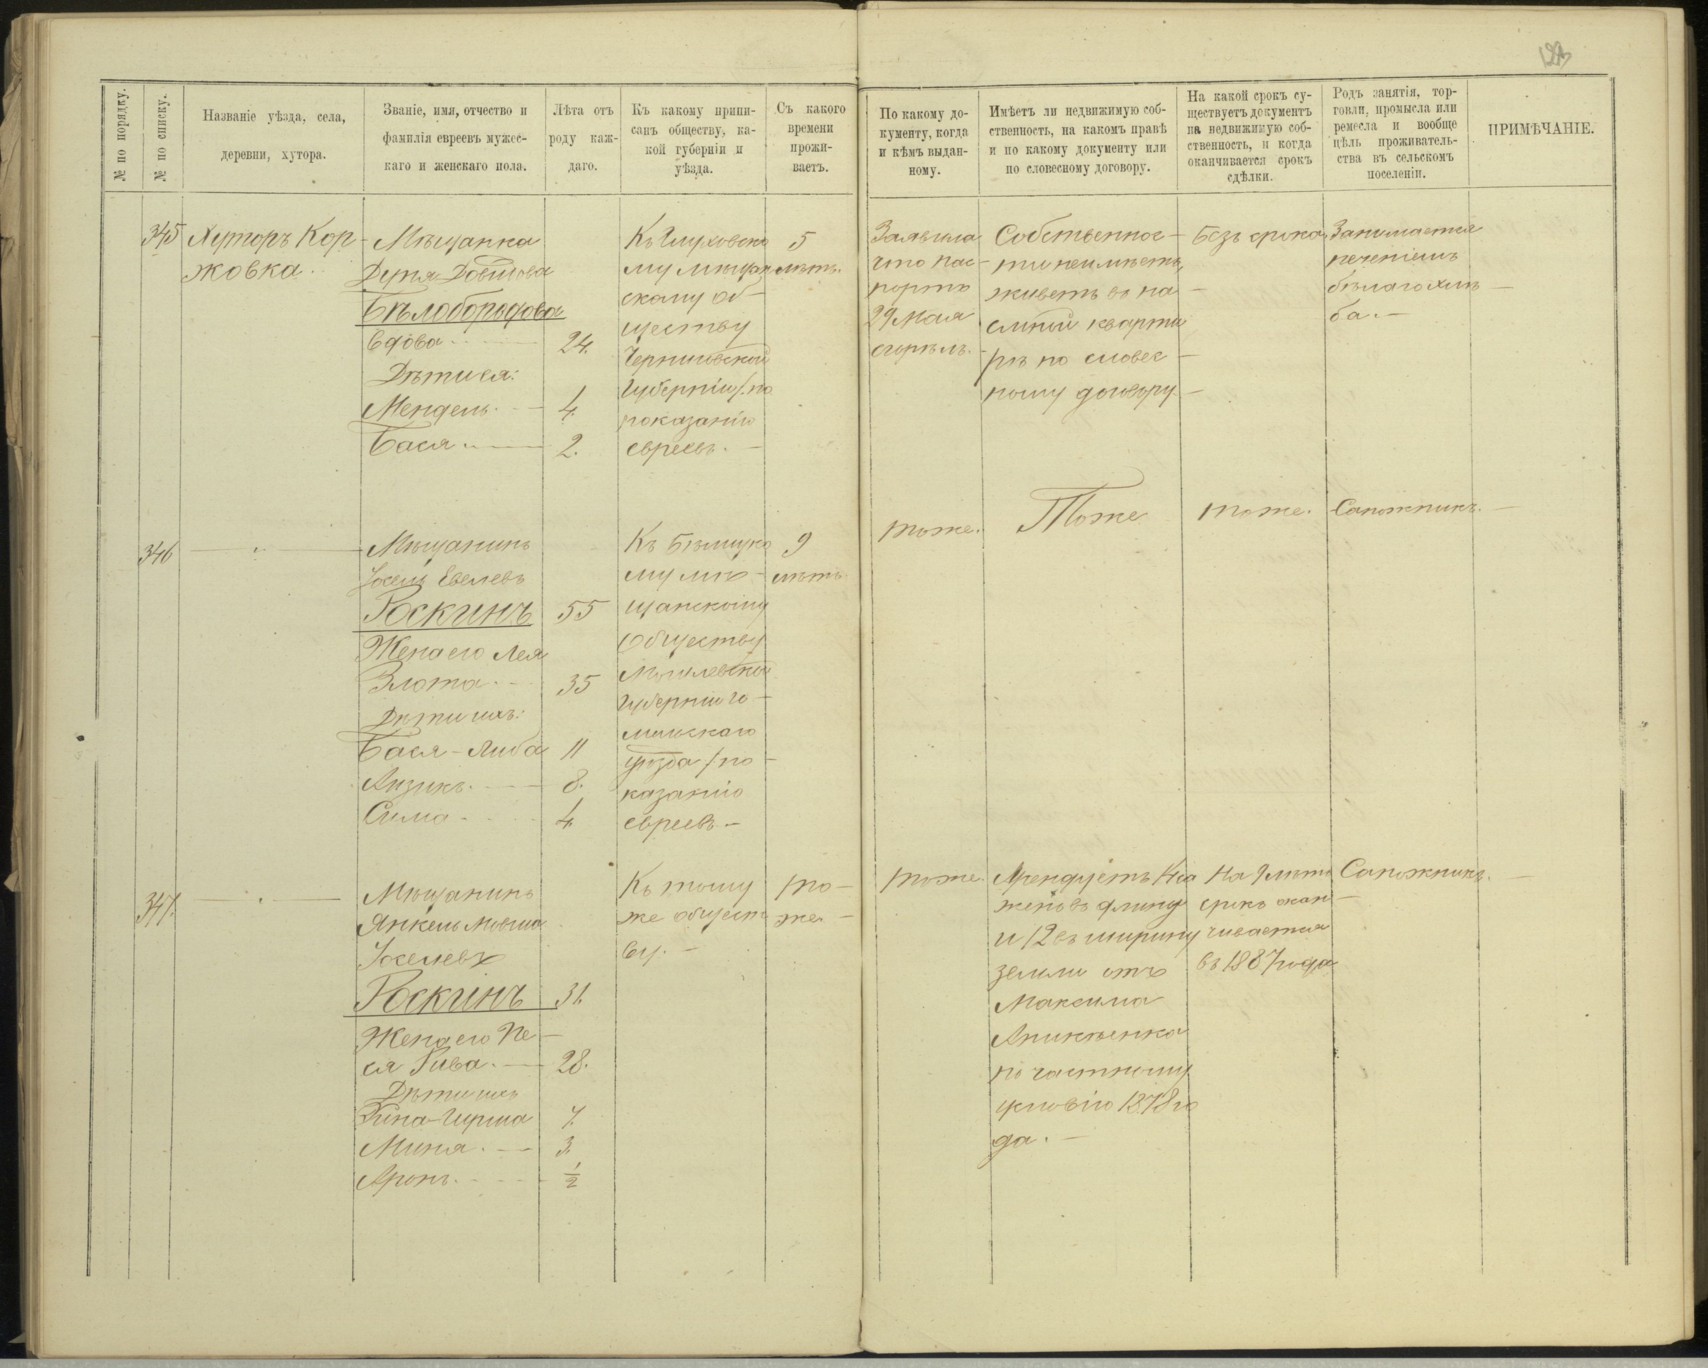 123
№ по порядку.
№ по списку.
Названіе уѣзда, села,
деревни, хутора.
Званіе, имя, отчество и
фамилія евреевъ мужес-
каго и женскаго пола.
Лѣта отъ
роду каж-
даго.
Къ какому припи-
санъ обществу, ка-
кой губерніи и
уѣзда.
Съ какого
времени
прожи-
ваетъ.
По какому до-
кументу, когда
и кѣмъ выдан-
ному.
Имѣетъ ли недвижимую соб-
ственность, на какомъ правѣ
и по какому документу или
по словесному договору.
На какой срокъ су-
ществуетъ документъ
на недвижимую соб-
ственность, и когда
оканчивается срокъ
сдѣлки.
Родъ занятія, тор-
говли, промысла или
ремесла и вообще
цѣль проживатель-
ства въ сельскомъ
поселеніи.
ПРИМѢЧАНІЕ.
345
Хуторъ Кор-
жовка.
Мѣщанка
Дуня Довтова
Бѣлобородова
Вдова 24.
Дѣти ея:
Мендель 4.
Бася 2.
Къ Глуховско
му мѣщан
скому об-
ществу
Черниговской
Губерніи / по
показанію
евреевъ.
5
лѣтъ.
Заявила
что пас-
портъ
29 Мая
сгорѣлъ.
Собственнос-
ти неимѣетъ,
живетъ въ на-
емной кварти
рѣ по словес-
ному договору
Безъ срока
Занимается
печеніемъ
бѣлаго хлѣ-
ба.
346
Мѣщанинъ
Іосель Евелевъ
Роскинъ 55
Жена его Лея
Злота 35
Дѣти ихъ:
Бася-Либа 11
Айзикъ 8.
Сима 4.
Къ Бѣлицко
му мѣ-
щанскому
Обществу
Могилевской
Губерніи Го-
мельскаго
уѣзда / по-
казанію
евреевъ
9
лѣтъ
тоже.
Тоже
тоже.
Сапожникъ.
347.
Мѣщанинъ
Янкель Мовша
Іоселевъ
Роскинъ 31.
Жена его Пе-
ся Рива. 28.
Дѣти ихъ
Гирша 7.
Миня 3.
Аронъ ½
Къ тому
же общест
ву.
то-
же
тоже.
Арендуетъ
женъ въ длину
и 12 въ ширину
земли отъ
Максима
Аникѣенка
по частному
условію 1878 го
да.
На 9 лѣтъ
срокъ окан-
чивается
въ 1887 года
Сапожникъ.